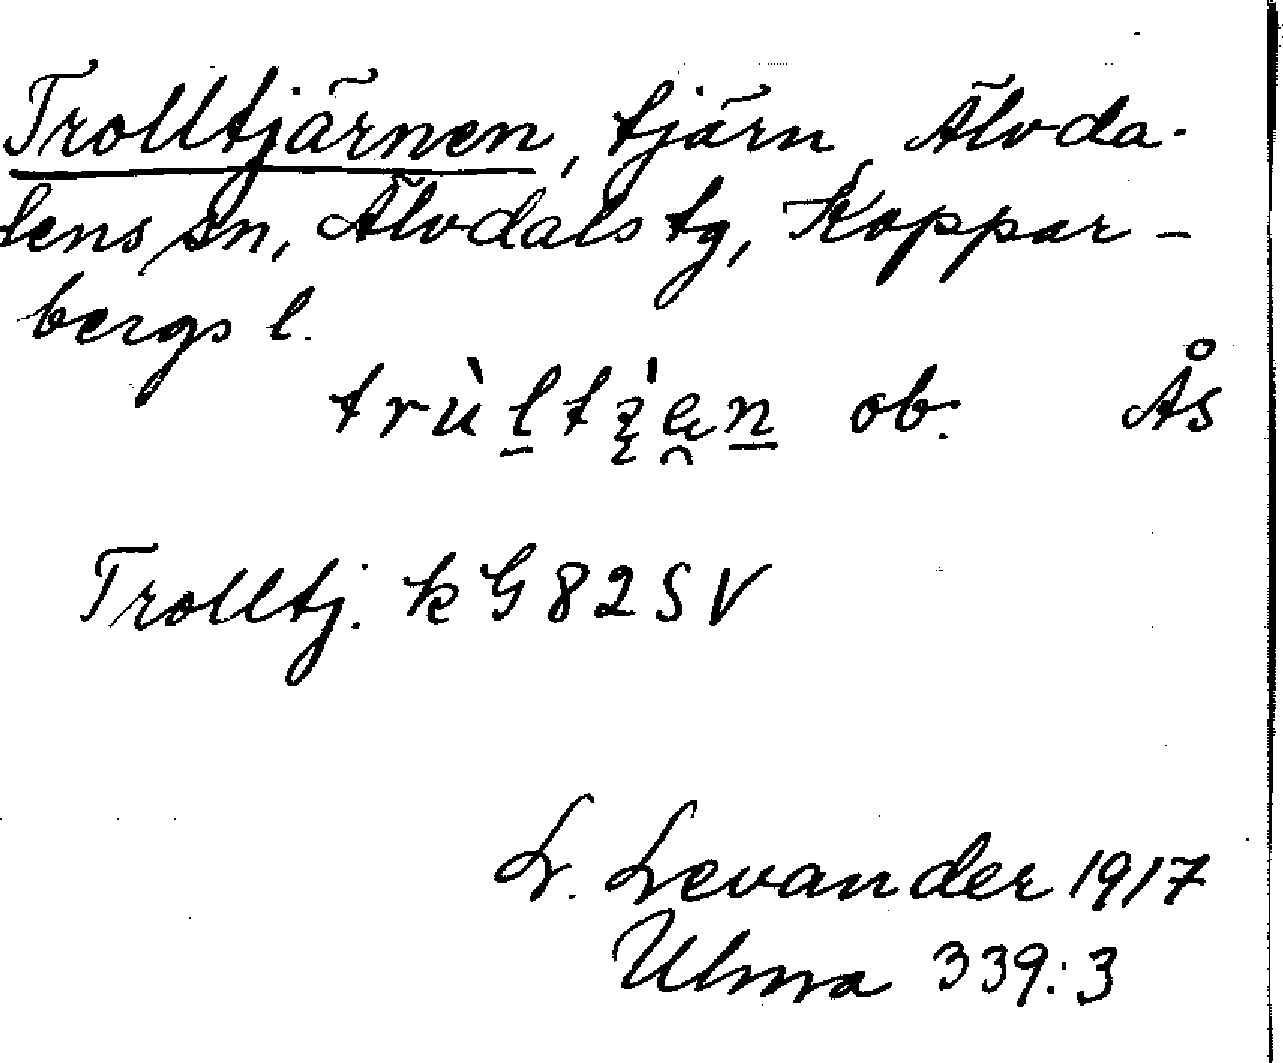 Trolltjärnen, tjärn, Älvda-
lens sn, Älvdals tg, Koppar-
bergs l.
ob. Ås
Trolltj. k G 82 SV
L. Levander 1917
Ulma 339:3